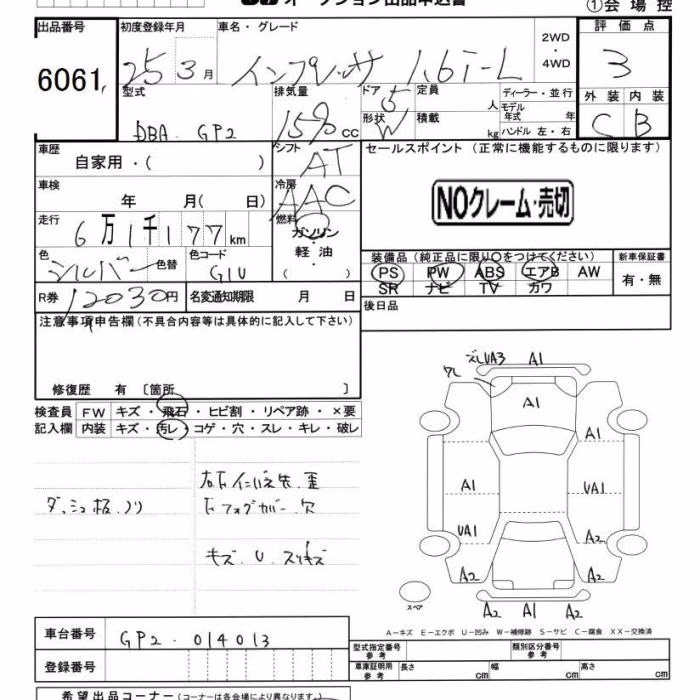 オークション出品申込書
①会場控
出品番号
初度登録年月
車名・グレード
2WD
・
4WD
評価点
6061
25
3月
インプレッサ 1.6i-L
3
型式
排気量
ドア
定員
ディーラー・並行
外装
内装
5
人
モデル年式
年
DBA GP2
cc
形状
W
積載
kg
ハンドル 左・右
C
B
車歴
自家用・( )
シフト
AT
セールスポイント(正常に機能するものに限ります)
車検
年 月( 日)
冷房
AAC
NOクレーム・売切
走行
6万1千177km
燃料
ガソリン
・
軽油
( )
色
シルバー
色替
色コード
G1U
装備品(純正品に限り○をつけてください)
新車保証書
PS PW ABS エアB AW
SR ナビ TV カワ
有・無
R券
12030円
名変通知期限 月 日
後日品
注意事項申告欄(不具合内容等は具体的に記入して下さい)
修復歴 有 〔箇所 〕
検査員
FW
キズ・飛石・ヒビ割・リペア跡・×要
記入欄
内装
キズ・汚レ・コゲ・穴・スレ・キレ・破レ
ダッシュ板ノリ
フォグカバー 穴
キズ U スリキズ
UA3 A1
A1
A1
A1
UA1
UA1
A2
A2
A2
スペア
A2 A1 A2
A-キズ E-エクボ U-凹み W-補修跡 S-サビ C-腐食 XX-交換済
車台番号
GP2-014013
型式指定番号
参考
類別区分番号
参考
登録番号
車庫証明用
参考
長さ cm
幅 cm
高さ cm
希望出品コーナー(コーナーは各会場により異なります。)